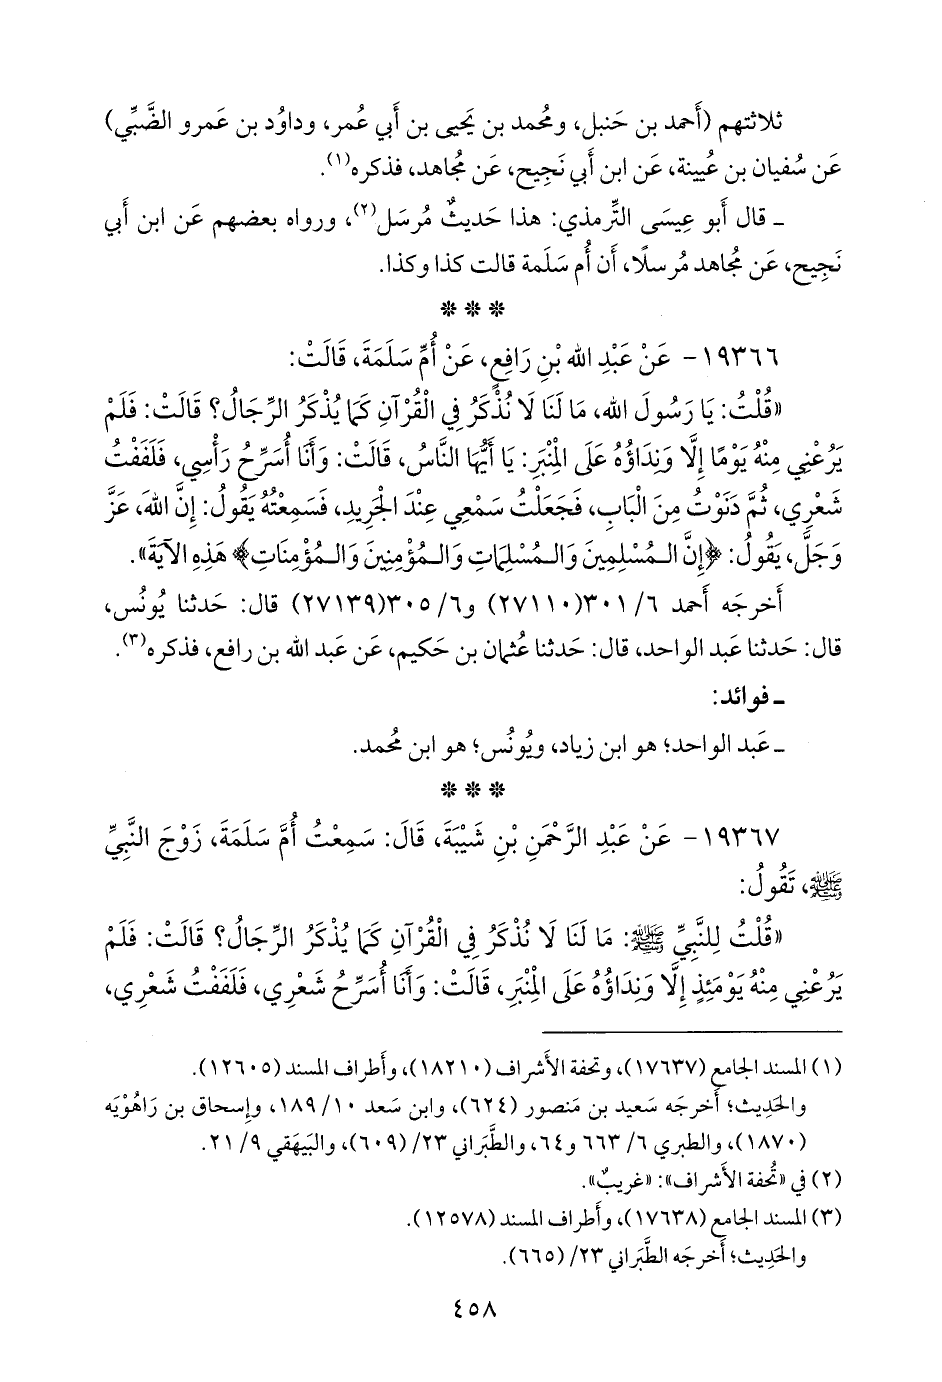 ثلاثتهم (أَحمد بن حَنبل، ومُحمد بن يَحيى بن أَبي عُمر، وداوُد بن عَمرو الضَّبِّي)
عَن سُفيان بن عُيينة، عَن ابن أَبي نَجِيح، عَن مُجاهد، فذكره(١).
ـ قال أَبو عِيسَى التِّرمذي: هذا حَديثٌ مُرسَل(٢)، ورواه بعضهم عَن ابن أَبي
نَجِيح، عَن مُجاهد مُرسلًا، أَن أُم سَلَمة قالت كذا وكذا.
* * *
١٩٣٦٦- عَنْ عَبْدِ الله بْنِ رَافِعٍ، عَنْ أُمِّ سَلَمَةَ، قَالَتْ:
«قُلْتُ: يَا رَسُولَ الله، مَا لَنَا لَا نُذْكَرُ فِي الْقُرْآنِ كَمَا يُذْكَرُ الرِّجَالُ؟ قَالَتْ: فَلَمْ
يَرُعْنِي مِنْهُ يَوْمًا إِلَّا وَنِدَاؤُهُ عَلَى المِنْبَرِ: يَا أَيُّهَا النَّاسُ، قَالَتْ: وَأَنَا أُسَرِّحُ رَأْسِي، فَلَفَفْتُ
شَعْرِي، ثُمَّ دَنَوْتُ مِنَ الْبَابِ، فَجَعَلْتُ سَمْعِي عِنْدَ الْجَرِيدِ، فَسَمِعْتُهُ يَقُولُ: إِنَّ اللهَ، عَزَّ
وَجَلَّ، يَقُولُ: ﴿إِنَّ الـمُسْلِمِينَ وَالـمُسْلِمَاتِ وَالـمُؤْمِنِينَ وَالـمُؤْمِنَاتِ﴾ هَذِهِ الآيَةَ».
أَخرجَه أَحمد ٦/ ٣٠١(٢٧١١٠) و٦/ ٣٠٥(٢٧١٣٩) قال: حَدثنا يُونُس،
قال: حَدثنا عَبد الواحد، قال: حَدثنا عُثمان بن حَكيم، عَن عَبد الله بن رافع، فذكره(٣).
ـ فوائد:
ـ عَبد الواحد؛ هو ابن زياد، ويُونُس؛ هو ابن مُحمد.
* * *
١٩٣٦٧- عَنْ عَبْدِ الرَّحْمَنِ بْنِ شَيْبَةَ، قَالَ: سَمِعْتُ أُمَّ سَلَمَةَ، زَوْجَ النَّبِيِّ
ﷺ، تَقُولُ:
«قُلْتُ لِلنَّبِيِّ ﷺ: مَا لَنَا لَا نُذْكَرُ فِي الْقُرْآنِ كَمَا يُذْكَرُ الرِّجَالُ؟ قَالَتْ: فَلَمْ
يَرُعْنِي مِنْهُ يَوْمَئِذٍ إِلَّا وَنِدَاؤُهُ عَلَى المِنْبَرِ، قَالَتْ: وَأَنَا أُسَرِّحُ شَعْرِي، فَلَفَفْتُ شَعْرِي،
(١) المسند الجامع (١٧٦٣٧)، وتحفة الأشراف (١٨٢١٠)، وأطراف المسند (١٢٦٠٥).
والحَدِيث؛ أَخرجَه سَعيد بن مَنصور (٦٢٤)، وابن سَعد ١٠/ ١٨٩، وإِسحاق بن رَاهُوْيَه
(١٨٧٠)، والطبري ٦/ ٦٦٣ و٦٤، والطَّبَراني ٢٣/ (٦٠٩)، والبَيهَقي ٩/ ٢١.
(٢) في «تُحفة الأشراف»: «غريبٌ».
(٣) المسند الجامع (١٧٦٣٨)، وأطراف المسند (١٢٥٧٨).
والحَدِيث؛ أَخرجَه الطَّبَراني ٢٣/ (٦٦٥).
٤٥٨